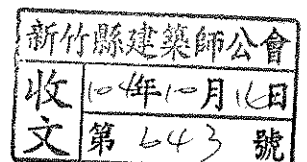 新竹縣建築師公會
收文
104年10月16日
第643號